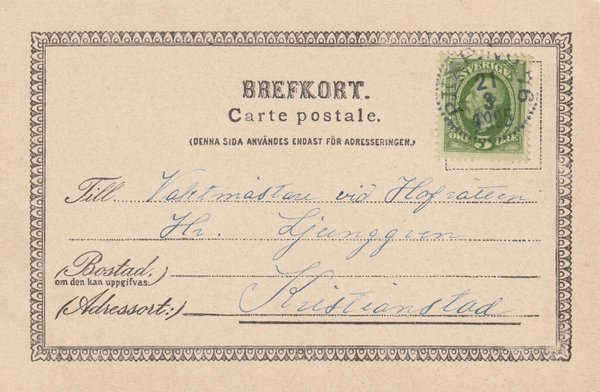 BREFKORT.
Carte postale.
(DENNA SIDA ANVÄNDES ENDAST FÖR ADRESSERINGEN.)
SVERIGE
21
3
1905
5
Till Vaktmästare vid Hofrätten
Hr. Ljunggren
(Bostad,
om den kan uppgifvas.)
(Adressort:) Kristianstad